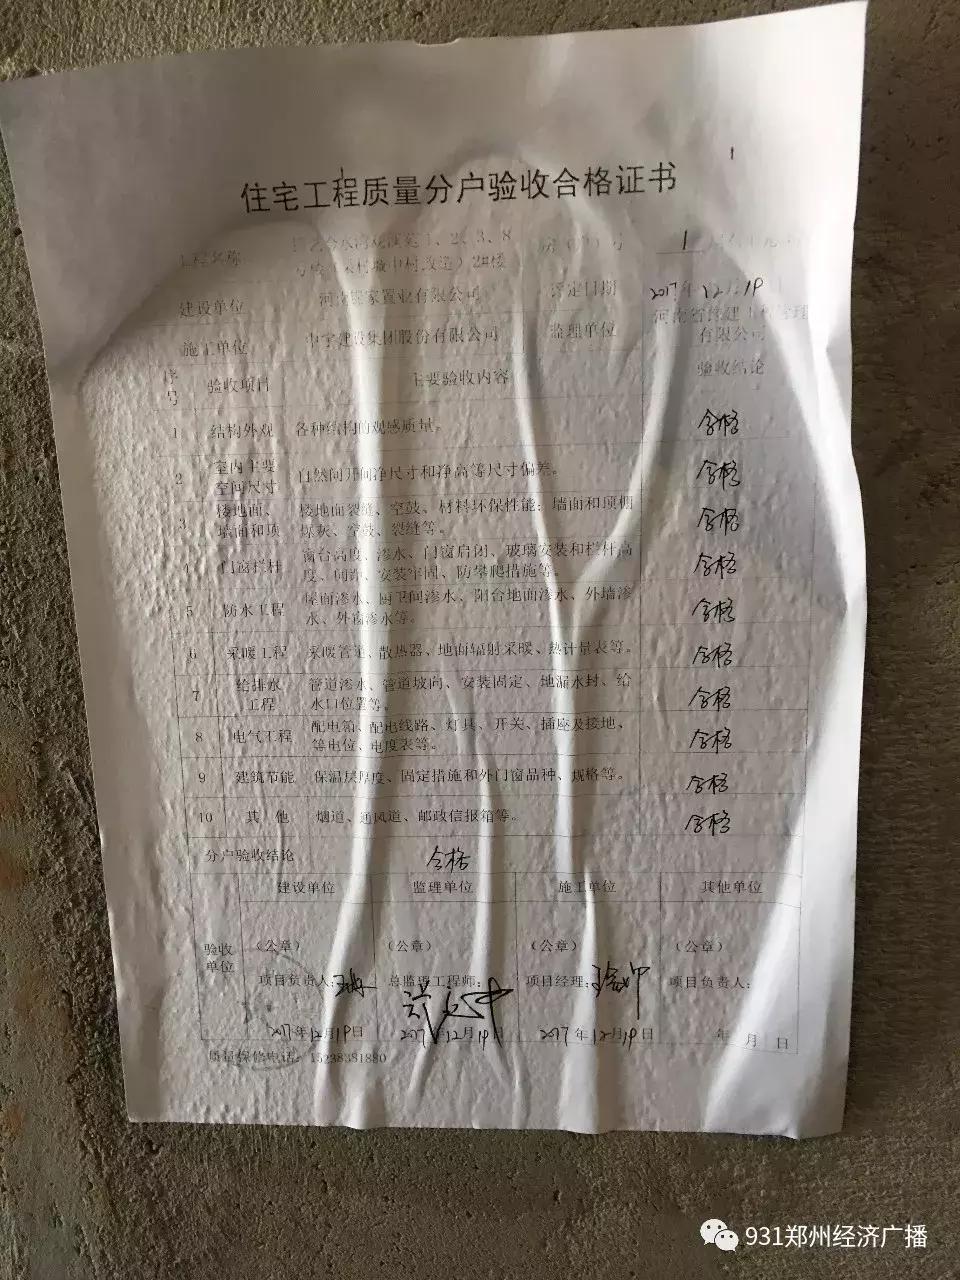 住宅工程质量分户验收合格证书
工程名称
1、2、3、8
2#楼
建设单位
置业有限公司
评定日期
2017年12月19日
施工单位
中宇建设集团股份有限公司
监理单位
有限公司
序号 验收项目 主要验收内容 验收结论
1 结构外观 各种结构的观感质量。 合格
2 室内主要空间尺寸 自然间开间净尺寸和净高等尺寸偏差。 合格
3 楼地面、墙面和顶 楼地面裂缝、空鼓、材料环保性能；墙面和顶棚
爆灰、空鼓、裂缝等。 合格
4 门窗栏杆 窗台高度、渗水、门窗启闭、玻璃安装和栏杆高
度、间距、安装牢固、防攀爬措施等。 合格
5 防水工程 屋面渗水、厨卫间渗水、阳台地面渗水、外墙渗
水、外窗渗水等。 合格
6 采暖工程 采暖管道、散热器、地面辐射采暖、热计量表等。 合格
7 给排水工程 管道渗水、管道坡向、安装固定、地漏水封、给
水口位置等。 合格
8 电气工程 配电箱、配电线路、灯具、开关、插座及接地、
等电位、电度表等。 合格
9 建筑节能 保温层厚度、固定措施和外门窗品种、规格等。 合格
10 其他 烟道、通风道、邮政信报箱等。 合格
分户验收结论 合格
验收单位
建设单位 监理单位 施工单位 其他单位
（公章） （公章） （公章） （公章）
项目负责人： 总监理工程师： 项目经理： 项目负责人：
2017年12月19日 2017年12月19日 2017年12月19日 年 月 日
质量保修电话：15238381880
931郑州经济广播